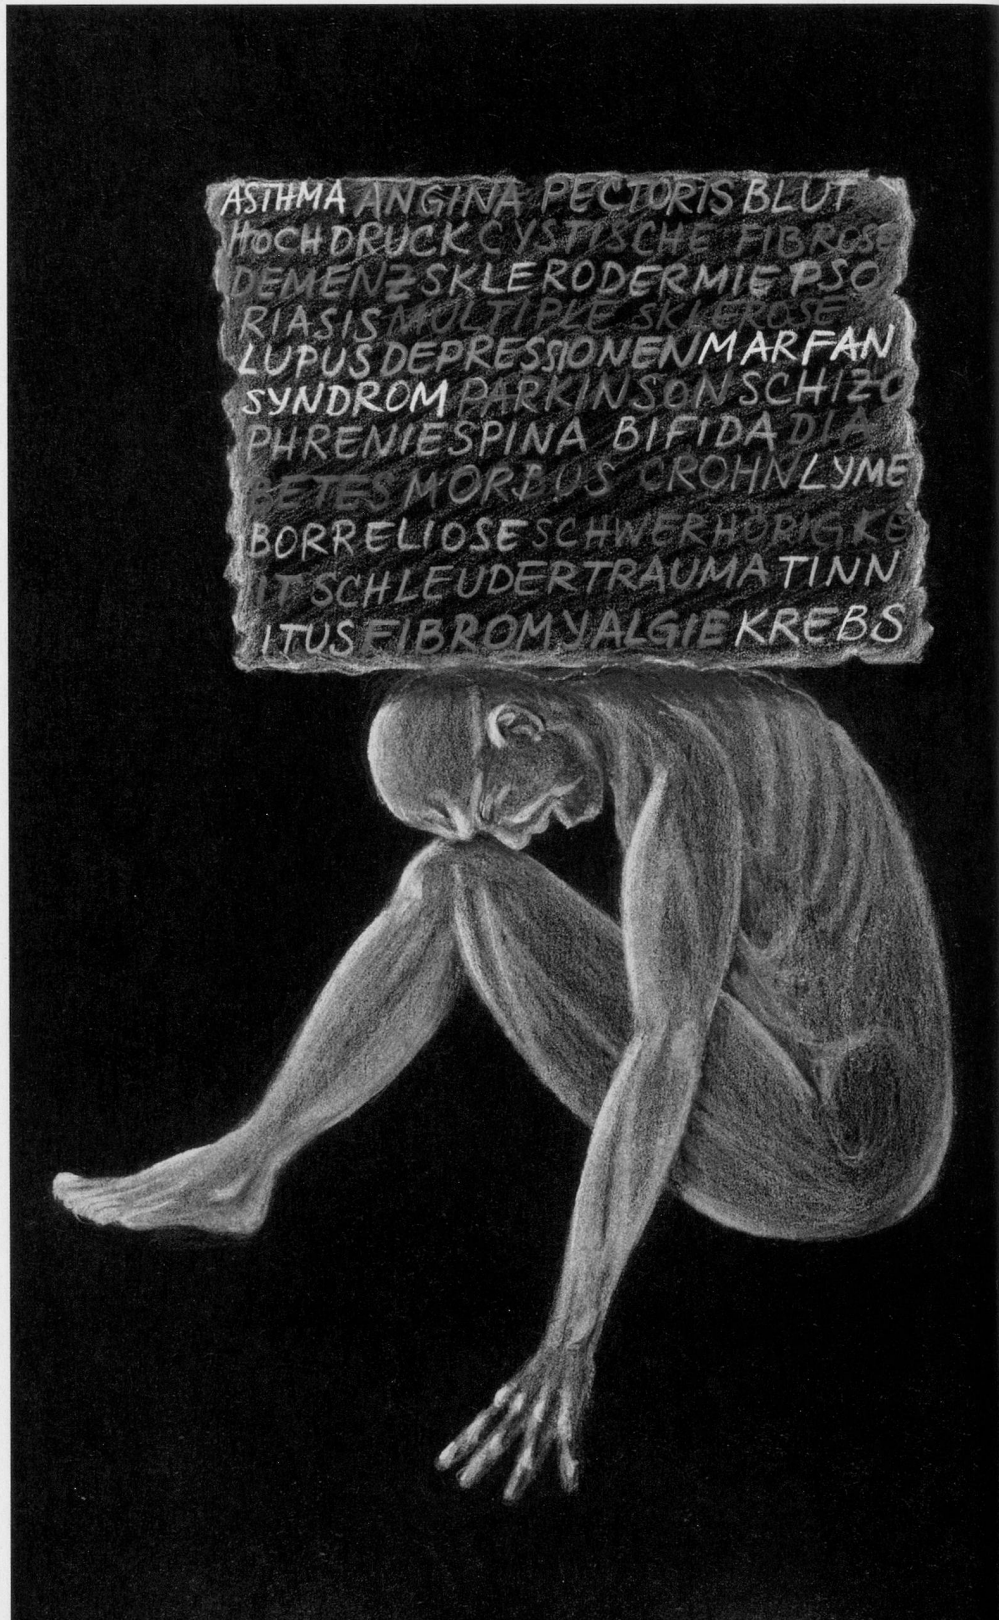 ASTHMA ANGINA PECTORIS BLUT
HOCHDRUCK CYSTISCHE FIBROSE
DEMENZ SKLERODERMIE PSO
RIASIS MULTIPLE SKLEROSE
LUPUS DEPRESSIONEN MARFAN
SYNDROM PARKINSON SCHIZO
PHRENIE SPINA BIFIDA DIA
BETES MORBUS CROHN LYME
BORRELIOSE SCHWERHÖRIGKE
IT SCHLEUDERTRAUMA TINN
ITUS FIBROMYALGIE KREBS